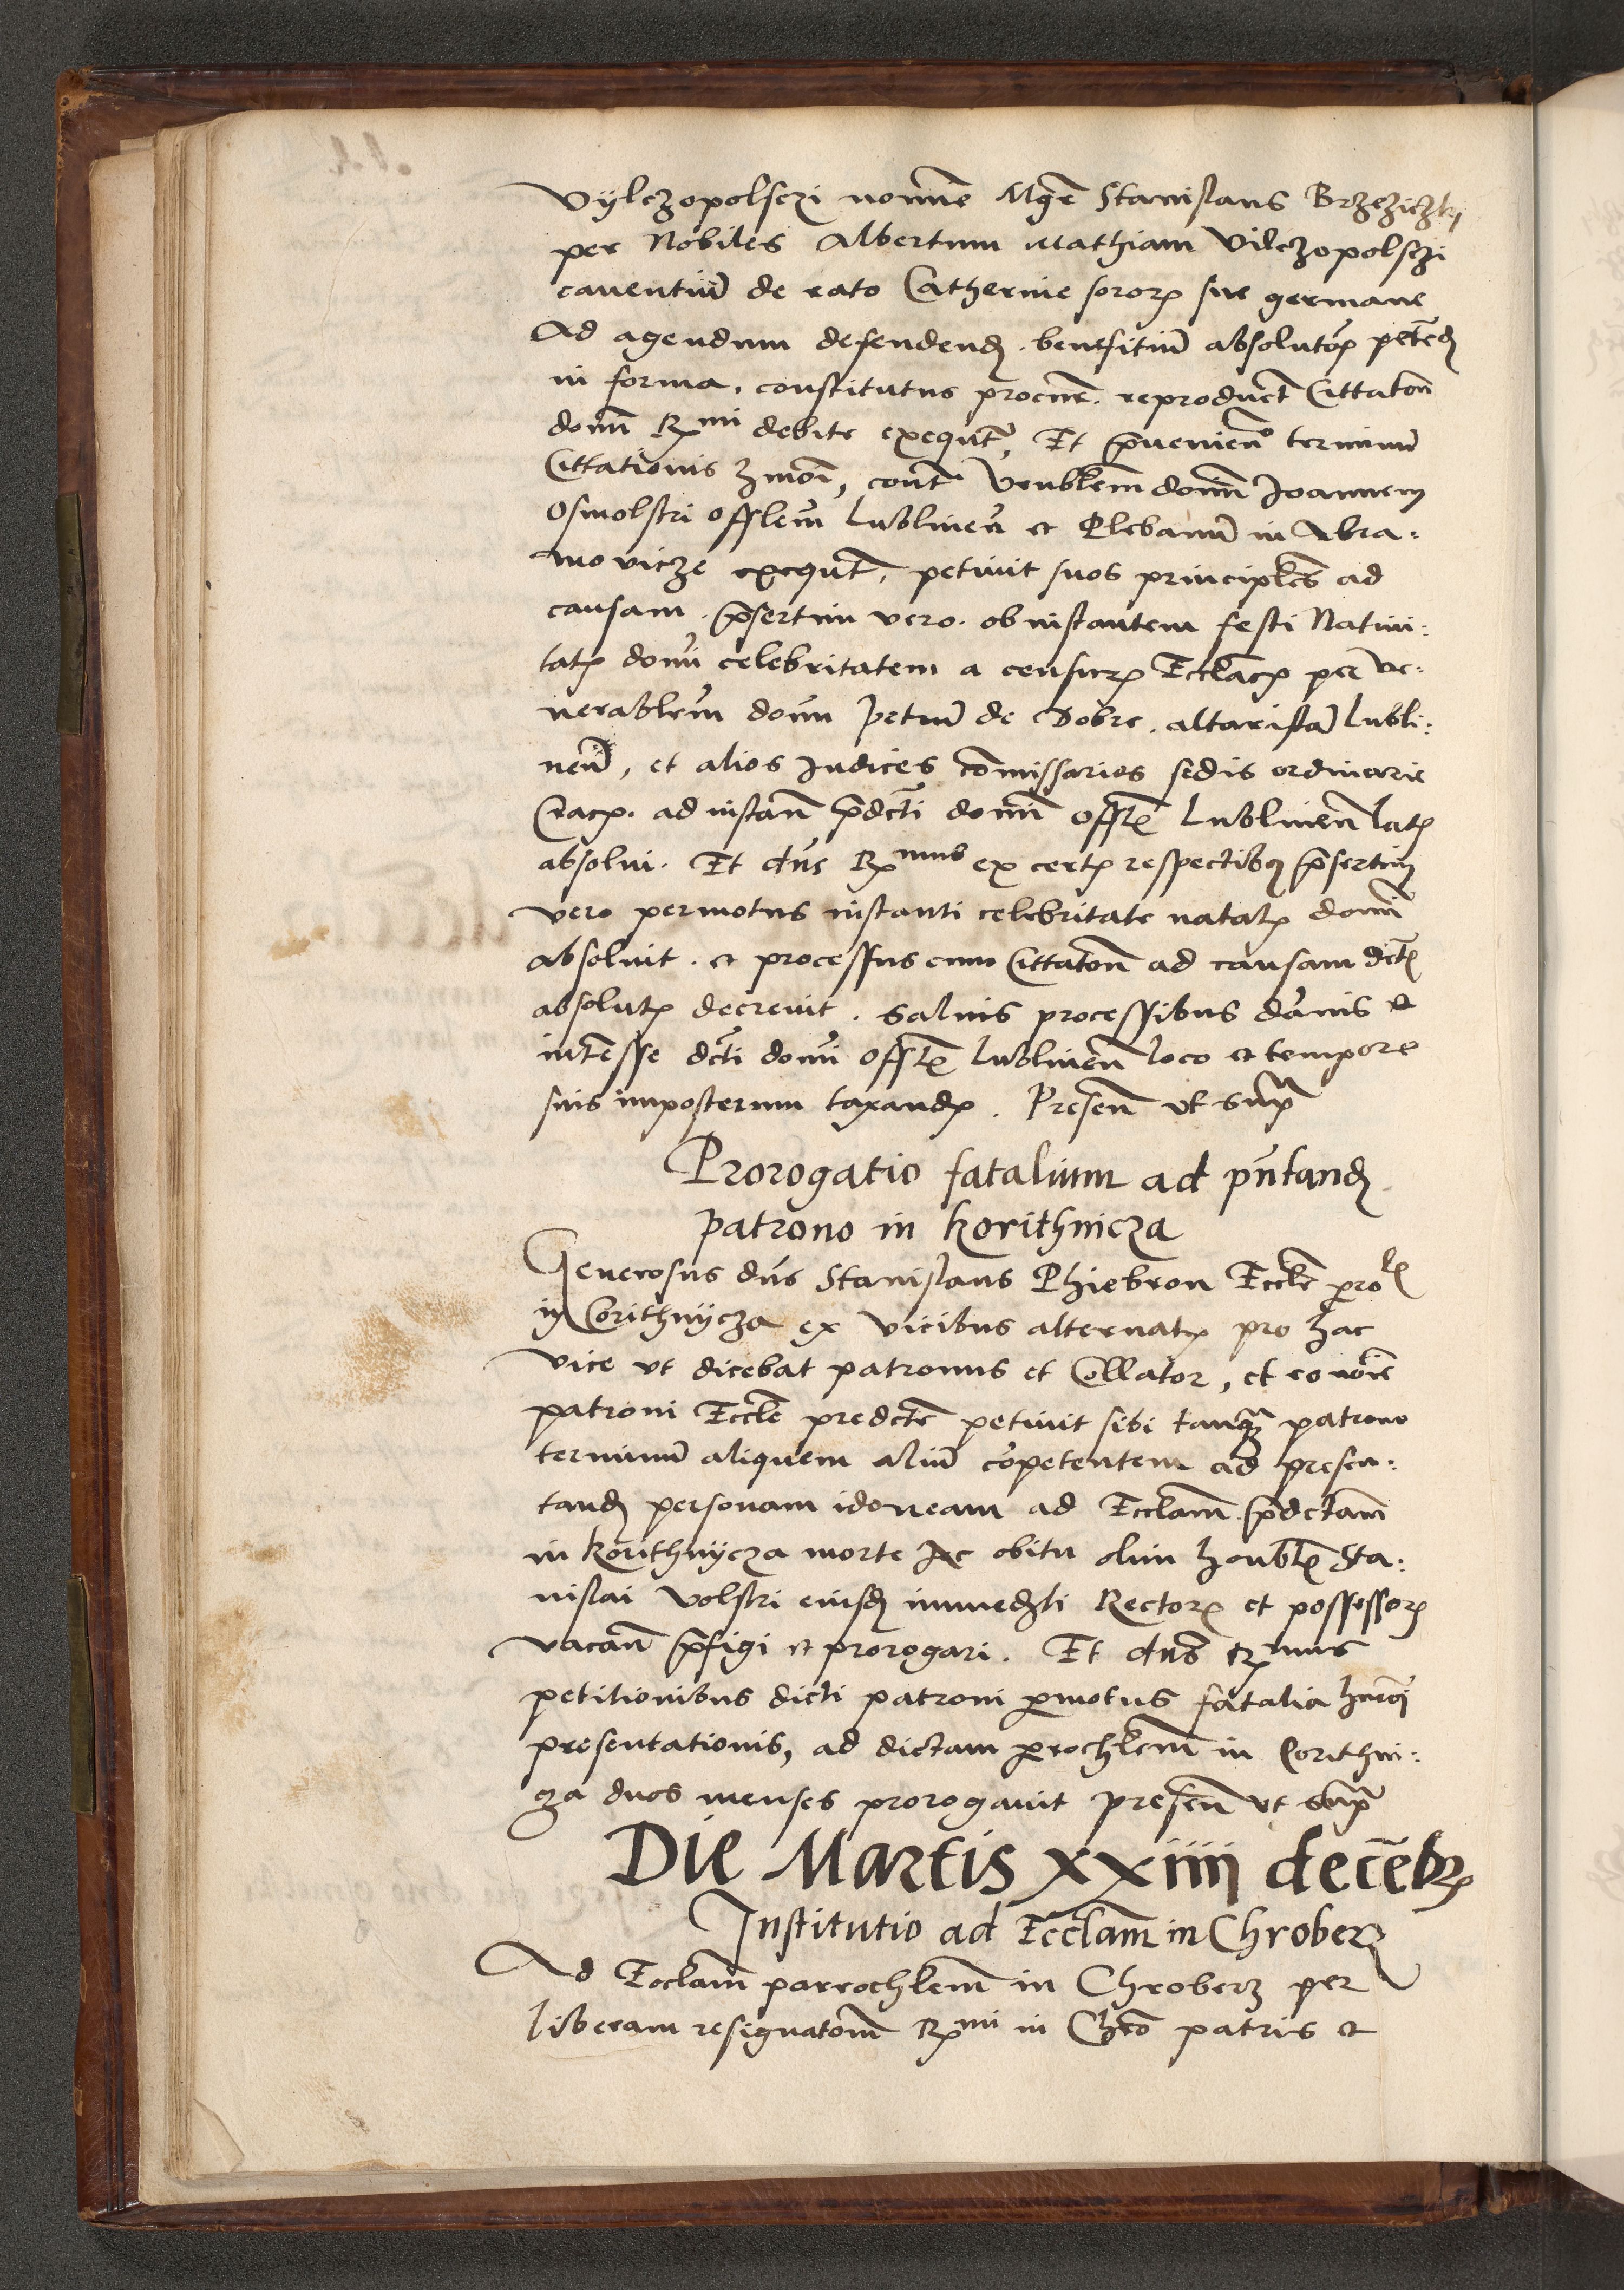 Vÿlczopolsczi nomine Mgr̄ Stanislaus Brzeziczki
per Nobiles Albertum Mathiam Vilczopolsczi
caventiū de rato Catherine sororꝭ sue germane
Ad agendum defendendꝫ . benefitiū absolutōꝭ petēdꝫ
in forma . constitutus procur̄ . reproduct̄ Cittatōn̄
domī Rꝫmi debite exequt̄, Et ꝑvenien̄o terminū
Cittationis hmōi, cont̄ Venēblem̄ domī Joannem
Osmolski offlem̄ Lublinen̄ et Plebanū in Abra:
movicze exequt̄, petivit suos principles̄ ad
causam . p̄sertim vero . ob instantem festi Nativi:
tatꝭ domī celebritatem a censurꝭ Eccl̄acꝭ per ve:
nerablem̄ domū Petrū de Dobre . altaristā Lubli:
nen̄, et alios Judices com̄issarios sedis ordinarie
Cracꝭ . ad instan̄ p̄dcti domī Offlꝭ Lublinen̄ latꝭ
absolvi . Et dn̄s Rꝫmus ex certꝭ respectibꝫ p̄sertim
vero permotus instanti celebritate natalꝭ domī
absolvit . et processus cum Cittatōn̄ ad causam dictꝭ
absolutꝭ decrevit . Salvis processibus dān̄is et
intēsse dcti domī Offlꝭ Lublinen̄ loco et tempore
suis imposterum taxandꝭ . Presen̄ ut supꝰ
Prorogatio fatalium ad pn̄tandꝫ
patrono in Korithnicza
Generosus dn̄s Stanislaus Phiebron Eccle p̄rolꝭ
in Corithnÿcza ex vicibus alternatꝭ pro hac
vice ut dicebat patronus et Collator, et eo noīe
patroni Eccle predcte petivit sibi tanqꝫ patrono
terminū aliquem aliū cōpetentem ad presen:
tandꝫ personam idoneam ad Eccl̄am p̄dctam̄
in Korithnÿcza morte Ac obitu olim honblꝭ Sta:
nislai Volski eiusdꝫ immedꝫti Rectorꝭ et possessorꝭ
vacan̄ p̄figi et prorogari . Et dn̄s Rꝫmus
petitionibus dicti patroni p̄motus fatalia hmōi
presentationis, ad dictam p̄rochlem̄ in Corithni:
cza duos menses prorogavit presen̄ ut supꝰ
Die Martis xxiiii decēbꝝ
Institutio ad Eccl̄am in Chroberz
Ad Eccl̄am parrochlem̄ in Chroberz per
liberam resignatōn̄ Rꝫmi in Chro patris et